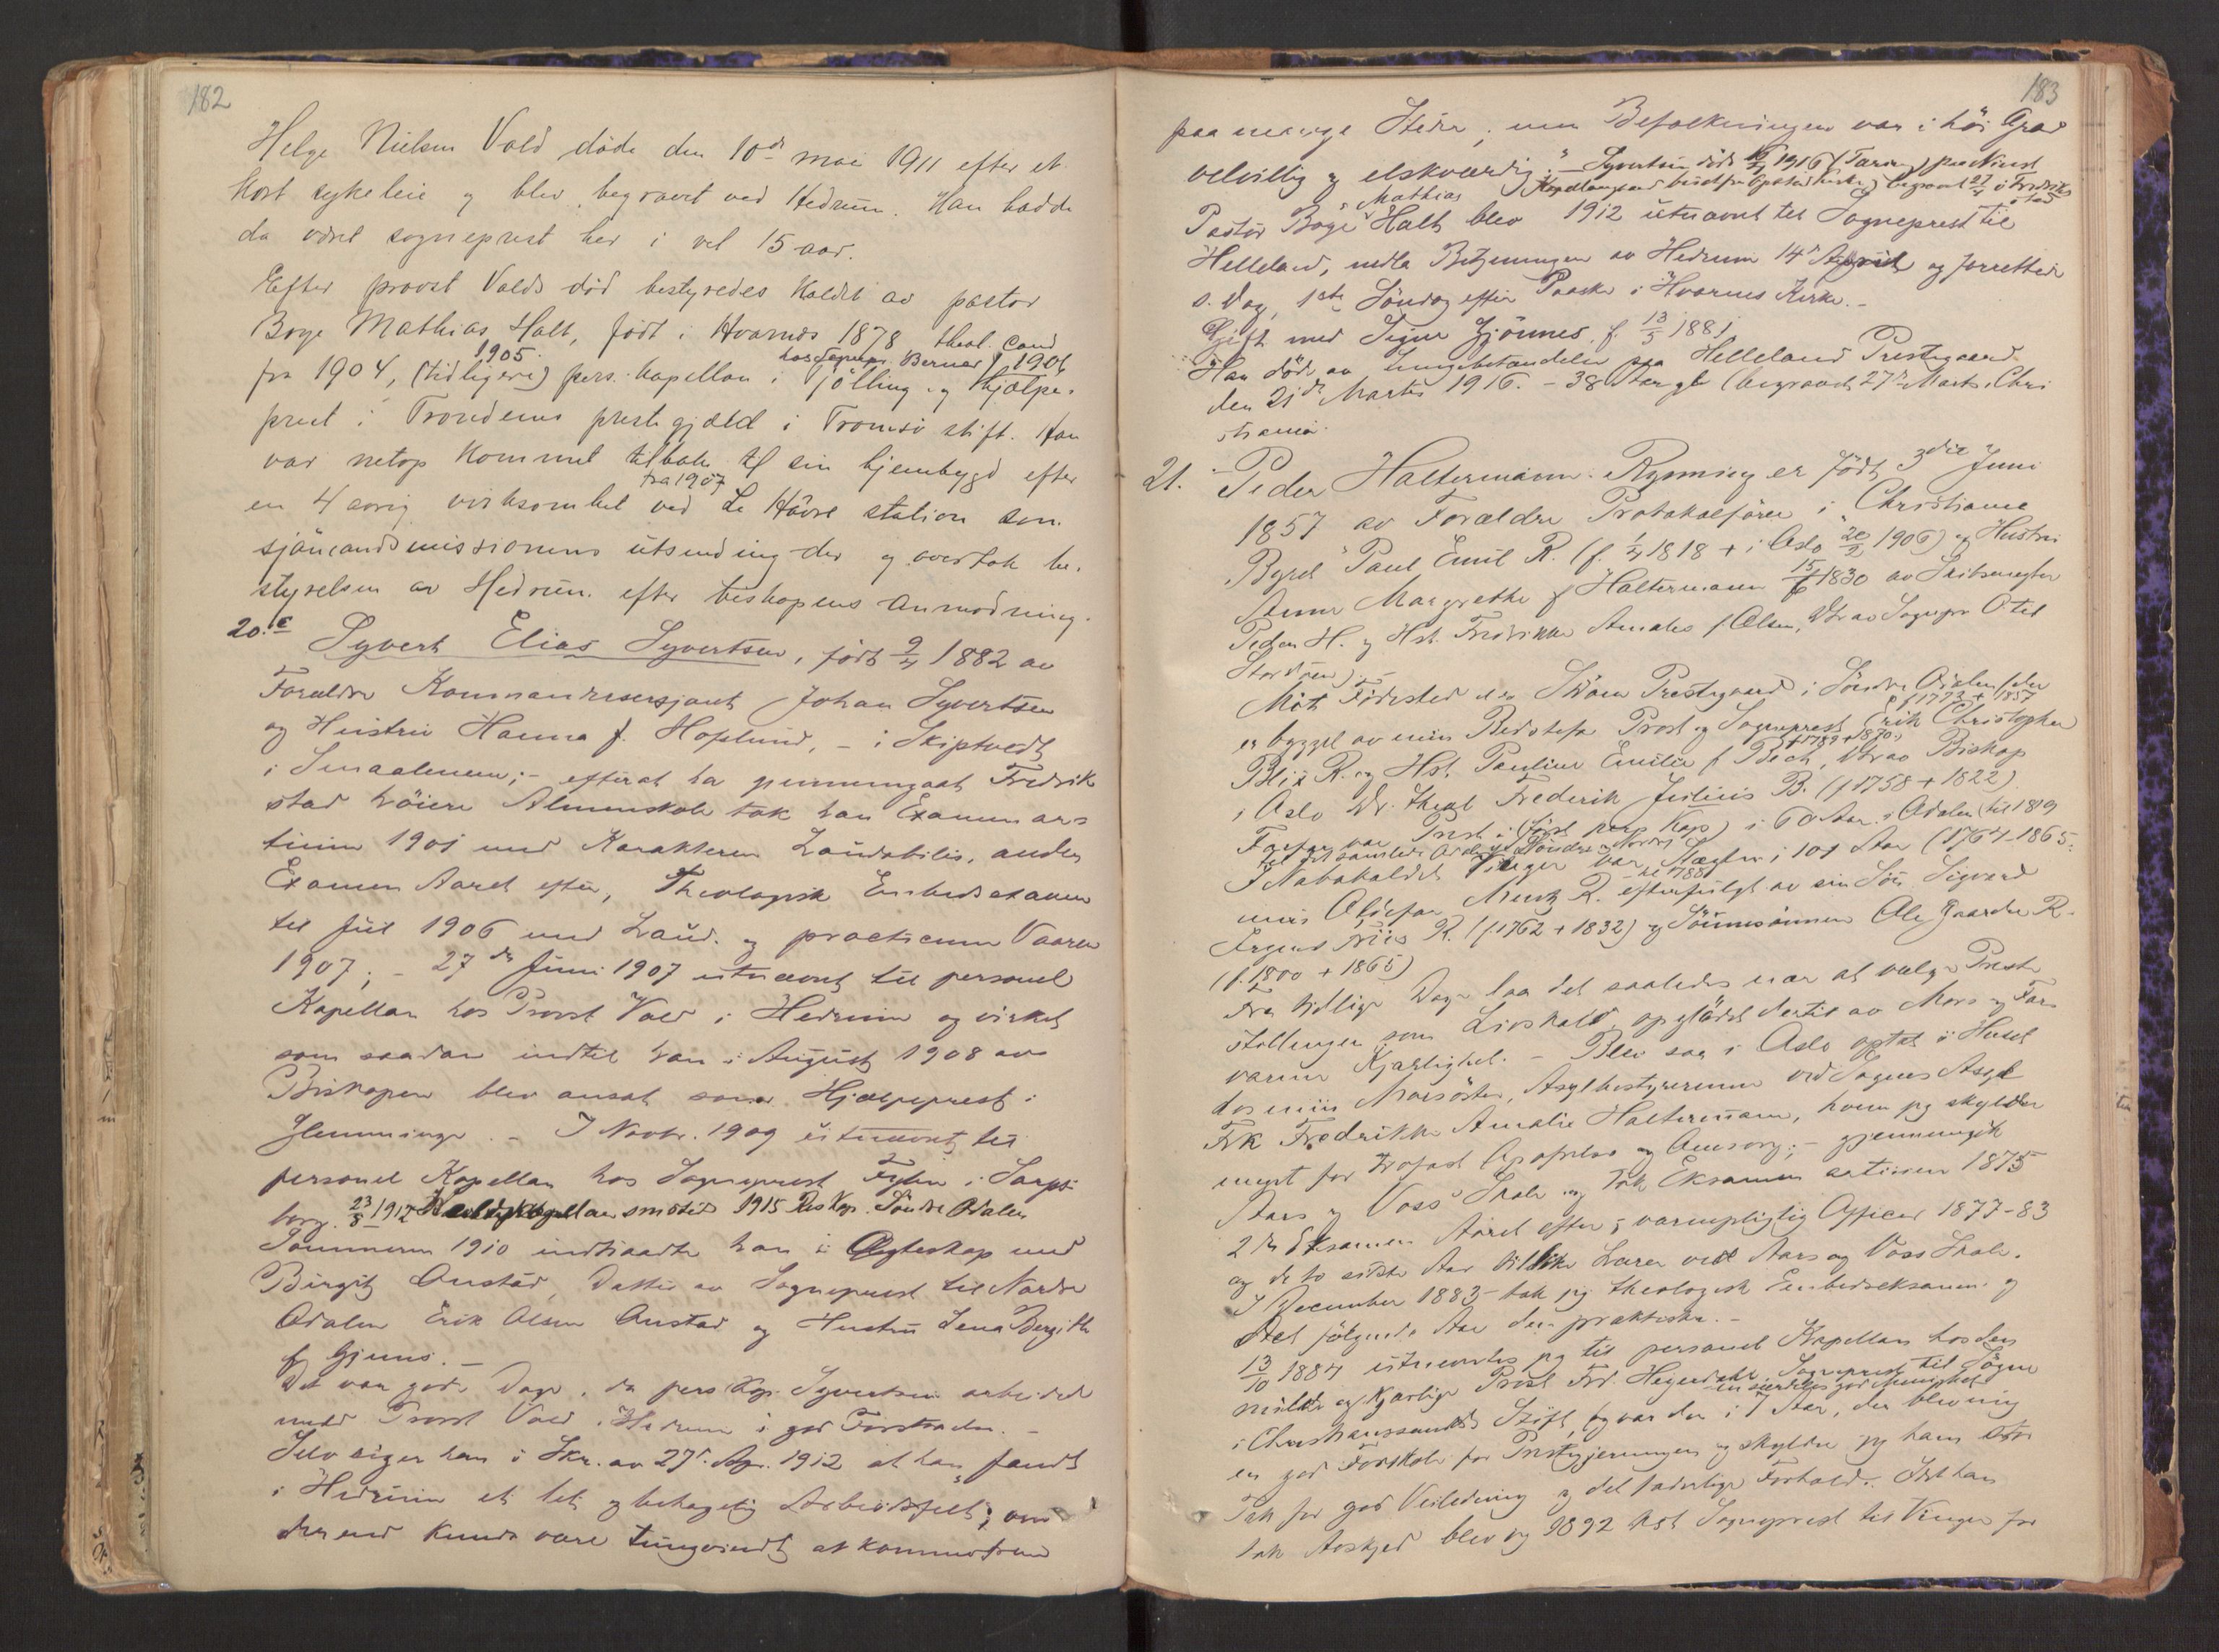 182
Helge Nielsen Vold døde den 10de mai 1911 efter et
kort sykeleie og blev begravet ved Hedrum. Han hadde
da været sogneprest her i vel 15 aar.
Efter provst Volds død bestyredes kaldet av pastor
Borge Mathias Holt, født i Hvarnes 1878 theol. cand
1905. hos Sognepr. Berner 1906
fra 1904, (tidligere) pers. kapellan i Tjølling og Hjælpe-
prest i Trondenes prestegjæld i Tromsø stift. Han
var netop kommet tilbake til sin hjembygd efter
fra 1907
en 4 aarig virksomhet ved Le Hâvre station som
sjømandsmissionens utsending der og overtok be-
styrelsen av Hedrum efter biskopens anmodning.
20. Syvert Elias Syvertsen, født 9/4 1882 av
Forældre Kommandersersjant Johan Syvertsen
og Hustru Hanna f. Hoflund, - i Skiptvedt
i Smaalenene; - efterat ha gjennemgaat Fredrik
stad høiere Almenskole tok han Examen ar-
tium 1901 med Karakteren Laudabilis, anden
Examen Aaret efter, Theologisk Embedsexamen
til Jul 1906 med Laud. og practicum Vaaren
1907; - 27de Juni 1907 utnævnt til personel
Kapellan hos Provst Vold i Hedrum og virket
som saadan indtil han i August 1908 av
Biskopen blev ansat som Hjælpeprest i
Glemminge. - I Novbr. 1909 utnævnt til
personel Kapellan hos Sogneprest i Sarps-
borg. 23/8 1912 1915 Res Kap. Søndre Odalen
Sommeren 1910 indtraadte han i Ægteskap med
Birgit Onstad, Datter av Sogneprest til Nordre
Odalen Erik Olsen Onstad og Hustru Lena Bergith
f. Gjems. -
Det var gode Dage, da pers Kap. Syvertsen arbeidet
med Provst Vold i Hedrum i god Forstaaelse. -
Selv siger han i Skr. av 27. Apr. 1912 at han „fandt
i Hedrum et let og behagelig Arbeidsfelt; om
der end kunde være tungvindt at komme frem
183
paa mange Steder, men Befolkningen var i høi Grad
velvillig og elskværdig." - Syvertsen døde 1916
begravet 27/4 i Fredrik-
stad
Mathias
Pastor Borge Holt blev 1912 utnævnt til Sogneprest til
Helleland, nedla Betjeningen av Hedrum 14 April og forrettede
s. Dag, 1ste Søndag efter Paaske i Hvarnes Kirke. -
Gift med Signe Gjønnes, f. 13/5 1881
Han døde av Lungebetændelse paa Helleland Prestegaard
den 21de Marts 1916. - 38 Aar gl. (begravet 27de Marts i Chri
stiania.
21. Peder Haltermann Rynning er født 3die Juni
1857 av Forældre Protokolfører i Christiania
Byret Paul Emil R. (f. 1/4 1818 + i Oslo 20/2 1906) og Hustru
Anne Margrethe f Haltermann 15/6 1830 av
Peder H. og Hst. Fredrikke Amalie f. Olsen, Dtr av Sognepr O til
Stordøen). -
Mit Fødested er Strøm Prestegaard i Søndre Odalen, den
f 1773 + 1857
er bygget av min Bedstefar Provst og Sogneprest Erik Christopher
f 1789 + 1870
Blix R. og Hst. Pauline Emilie f. Bech, Dtr av Biskop
i Oslo Dr. theol Frederik Julius B. (f 1758 + 1822)
Farfar var Prest (først pers Kap) i 60 Aar i Odalen (til 1819
til det samlede Odalen, Søndre og Nordre)
I Nabokaldet Vinger var Slægten i 101 Aar (1764-1865:
til 1788
min Oldefar Mentz R. efterfulgt av sin Søn Sigvard
Irgens Riis R. (f 1762 + 1832) og Sønnesønnen Ole Gaarder R.
(f. 1800 + 1865)
Fra tidlige Dage laa det saaledes nær at vælge Preste
stillingen som Livskald, opglødet dertil av Mors og Fars
varme Kjærlighet. - Blev saa i Oslo optat i Huset
hos min Morsøster, Asylbestyrerinne ved Sagenes Asyl
Frk Fredrikke Amalie Haltermann, hvem jeg skylder
meget for trofast Opofrelse og Omsorg; - gjennemgik
Aars og Voss' Skole og tok Eksamen artium 1875
2den Eksamen Aaret efter; varnepligtig Officer 1877-83
og de to sidste Aar tillike Lærer ved Aars og Voss Skole.
I December 1883 tok jeg theologisk Embedseksamen og
Det følgende Aar den praktiske. -
13/10 1884 utnævntes jeg til personel Kapellan hos den
milde og kjærlige Provst Frd. Heyerdahl, Sogneprest til Søgne
en særdeles god Menighet
i Christianssands Stift, jeg var der i 7 Aar, der blev mig
en god Forskole for Prestegjerningen og skylder jeg ham stor
Tak for god Veiledning og det faderlige Forhold. Idet han
tok Avsked blev jeg 1892 kst. Sogneprest til Vinger for